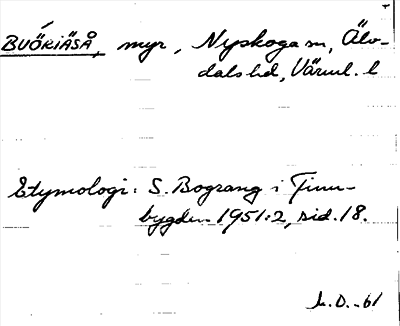 BUÖRIÄSÅ, myr, Nyskoga sn, Älv-
dals hd, Värml. l
Etymologi: S. Bograng i Finn-
bygden 1951:2, sid. 18.